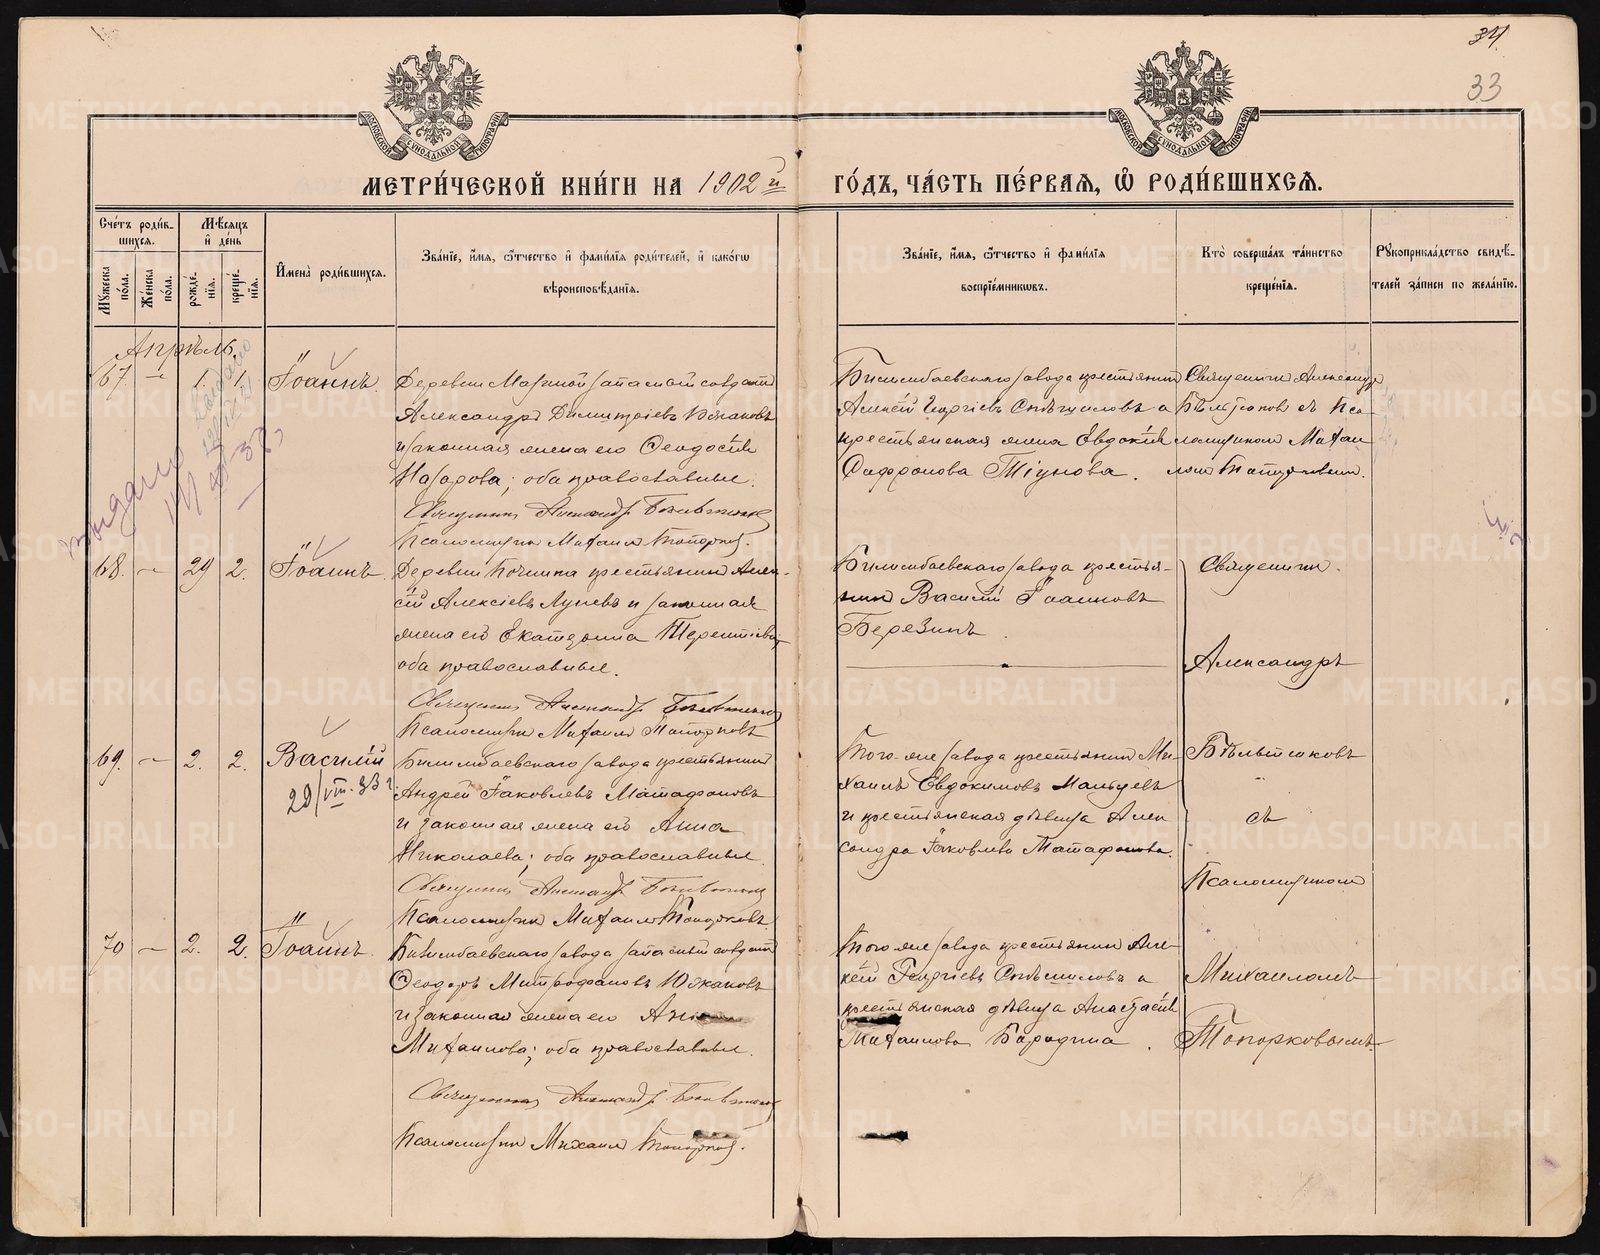 34
33
МОСКОВСКОЙ СѴНОДАЛЬНОЙ ТИПОГРАФІИ
МОСКОВСКОЙ СѴНОДАЛЬНОЙ ТИПОГРАФІИ
МЕТРИ́ЧЕСКОЙ КНИ́ГИ НА 1902й ГО́ДЪ, ЧА́СТЬ ПЕ́РВАЯ, Ѽ РОДИ́ВШИХСЯ.
Сче́тъ роди́в-
шихся.
Мѣ́сяцъ
и҆ де́нь
Му́жеска по́ла.
Же́нска по́ла.
рожде́-нїя.
креще́-нїя.
И҆мена̀ роди́вшихся.
Зва́нїе, и҆́мя, ѻ҆́тчество и҆ фами́лїя роди́телей, и҆ како́гѡ
вѣроисповѣ́данїя.
Зва́нїе, и҆́мя, ѻ҆́тчество и҆ фами́лїя
воспрїе́мникѡвъ.
Кто̀ соверша́лъ та́инство
креще́нїя.
Рꙋкоприкла́дство свидѣ́-
телей за́писи по жела́нїю.
Апрѣль.
67. — 1. 1. Іоаннъ
Деревни Макиной запасной солдатъ
Александръ Димитріевъ
и законная жена его Ѳеодосія
Назарова; оба православные.
Священникъ Александръ Бѣльтюковъ
Псаломщикъ Михаилъ Топорковъ.
Билимбаевскаго завода крестьянинъ
Алексѣй Георгіевъ Спѣшиловъ и
крестьянская жена Евдокія
Сафронова Тіунова.
Священникъ Александръ
Бѣльтюковъ съ Пса-
ломщикомъ Михаи-
ломъ Топорковымъ.
выдано
68. — 29 2. Іоаннъ
Деревни Починка крестьянинъ Алек-
сѣй Алексіевъ Лузевъ и законная
жена его Екатерина Терентіева,
оба православные.
Священникъ Александръ Бѣльтюковъ
Псаломщикъ Михаилъ Топорковъ
Билимбаевскаго завода крестья-
нинъ Василій Іоанновъ
Березинъ.
Священникъ
Александръ
69. — 2. 2. Василій
29/VIII.33 г.
Билимбаевскаго завода крестьянинъ
Андрей Іаковлевъ Матафоновъ
и законная жена его Анна
Николаева; оба православные.
Священникъ Александръ Бѣльтюковъ
Псаломщикъ Михаилъ Топорковъ.
Того же завода крестьянинъ Ми-
хаилъ Евдокимовъ Мальцевъ
и крестьянская дѣвица Алек
сандра Іаковлева Матафонова.
Бѣльтюковъ
съ
Псаломщикомъ
70 — 2. 2. Іоаннъ.
Билимбаевскаго завода запасный солдатъ
Ѳеодоръ Митрофановъ Южаковъ
и законная жена его
Михаилова; оба православные.
Священникъ Александръ Бѣльтюковъ
Псаломщикъ Михаилъ Топорковъ.
Того же завода крестьянинъ Але-
ксѣй Георгіевъ Спѣшиловъ и
крестьянская дѣвица Анастасія
Михаилова Бородина.
Михаиломъ
Топорковымъ
METRIKI.GASO-URAL.RU